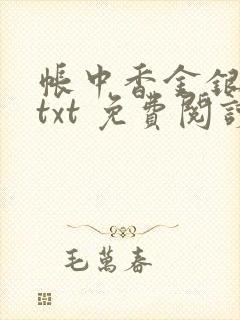 帳中香金銀
txt 免費閱讀
毛萬春